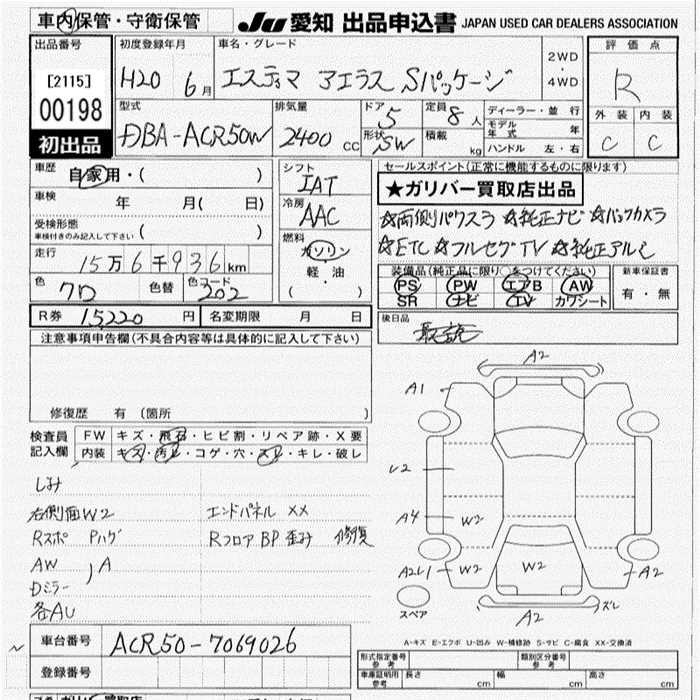 車内保管・守衛保管
JU 愛知 出品申込書 JAPAN USED CAR DEALERS ASSOCIATION
出品番号
[2115]
00198
初出品
初度登録年月
H20 6月
車名・グレード
エスティマ アエラス Sパッケージ
2WD
・
4WD
評価点
R
外装 内装
C C
型式
DBA-ACR50W
排気量
2400 CC
ドア 5
形状 SW
定員 8人
積載 kg
ディーラー・並行
モデル年式 年
ハンドル 左・右
車歴 自家用・( )
車検 年 月( 日)
受検形態
車検付きのみ記入して下さい ( )
走行
15万6千936km
色 クロ 色替 色コード 202
シフト
IAT
冷房
AAC
燃料
ガソリン
軽・油
( )
セールスポイント(正常に機能するものに限ります)
★ガリバー買取店出品
☆両側パワスラ ☆純正ナビ ☆バックカメラ
☆ETC ☆フルセグTV ☆純正アルミ
装備品(純正品に限り○をつけてください)
PS PW エアB AW
SR ナビ TV カワシート
新車保証書
有・無
R券 15220 円 名変期限 月 日
後日品
取説
注意事項申告欄(不具合内容等は具体的に記入して下さい)
修復歴 有(箇所 )
検査員記入欄
FW キズ・飛石・ヒビ割・リペア跡・X要
内装 キズ・汚れ・コゲ・穴・スレ・キレ・破レ
シミ
右側面W2 エンドパネル XX
Rスポ Pハゲ RフロアBP歪み 修復
AW
Dミラー ,A
各AU
A2
A1
A4 W2
A2 W2 W2 A2
A2 ズレ
スペア
A-キズ E-エクボ U-凹み W-補修跡 S-サビ C-腐食 XX-交換済
車台番号 ACR50-7069026
登録番号
形式指定番号
参考
類別区分番号
参考
車庫証明用
参考
長さ cm 幅 cm 高さ cm